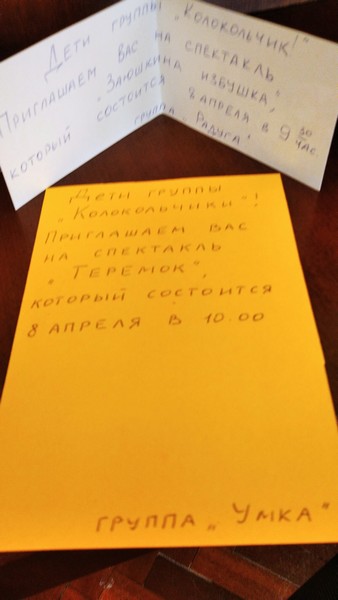 Дети группы „Колокольчик!"
Приглашаем вас на спектакль
„Заюшкина избушка",
который состоится 8 апреля в 9 30 час.
группа „Радуга"
Дети группы
„Колокольчики"!
Приглашаем вас
на спектакль
„Теремок",
который состоится
8 апреля в 10.00
группа „Умка"